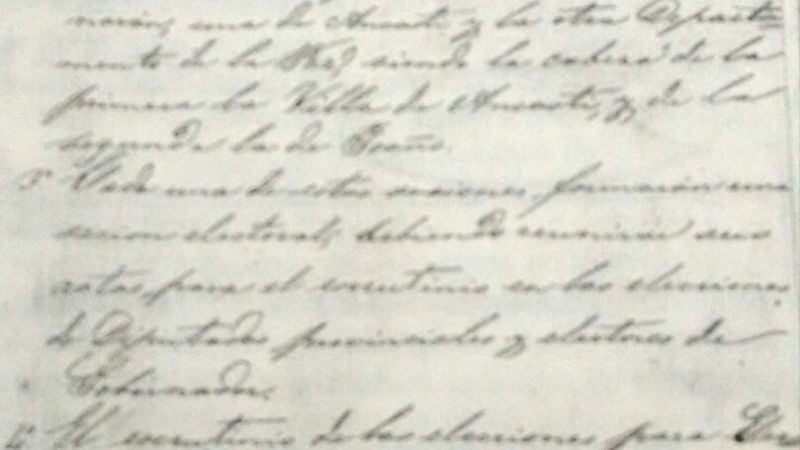 narán, una de Ancasti y la otra Departa
mento de la Paz, siendo la cabeza de la
primera la Villa de Ancasti, y de la
segunda la de Icaño.
3º Cada una de estas secciones formarán una
seccion electoral, debiendo reunirse sus
actas para el escrutinio en las elecciones
de Diputados provinciales y electores de
Gobernador.
4º El escrutinio de las elecciones para